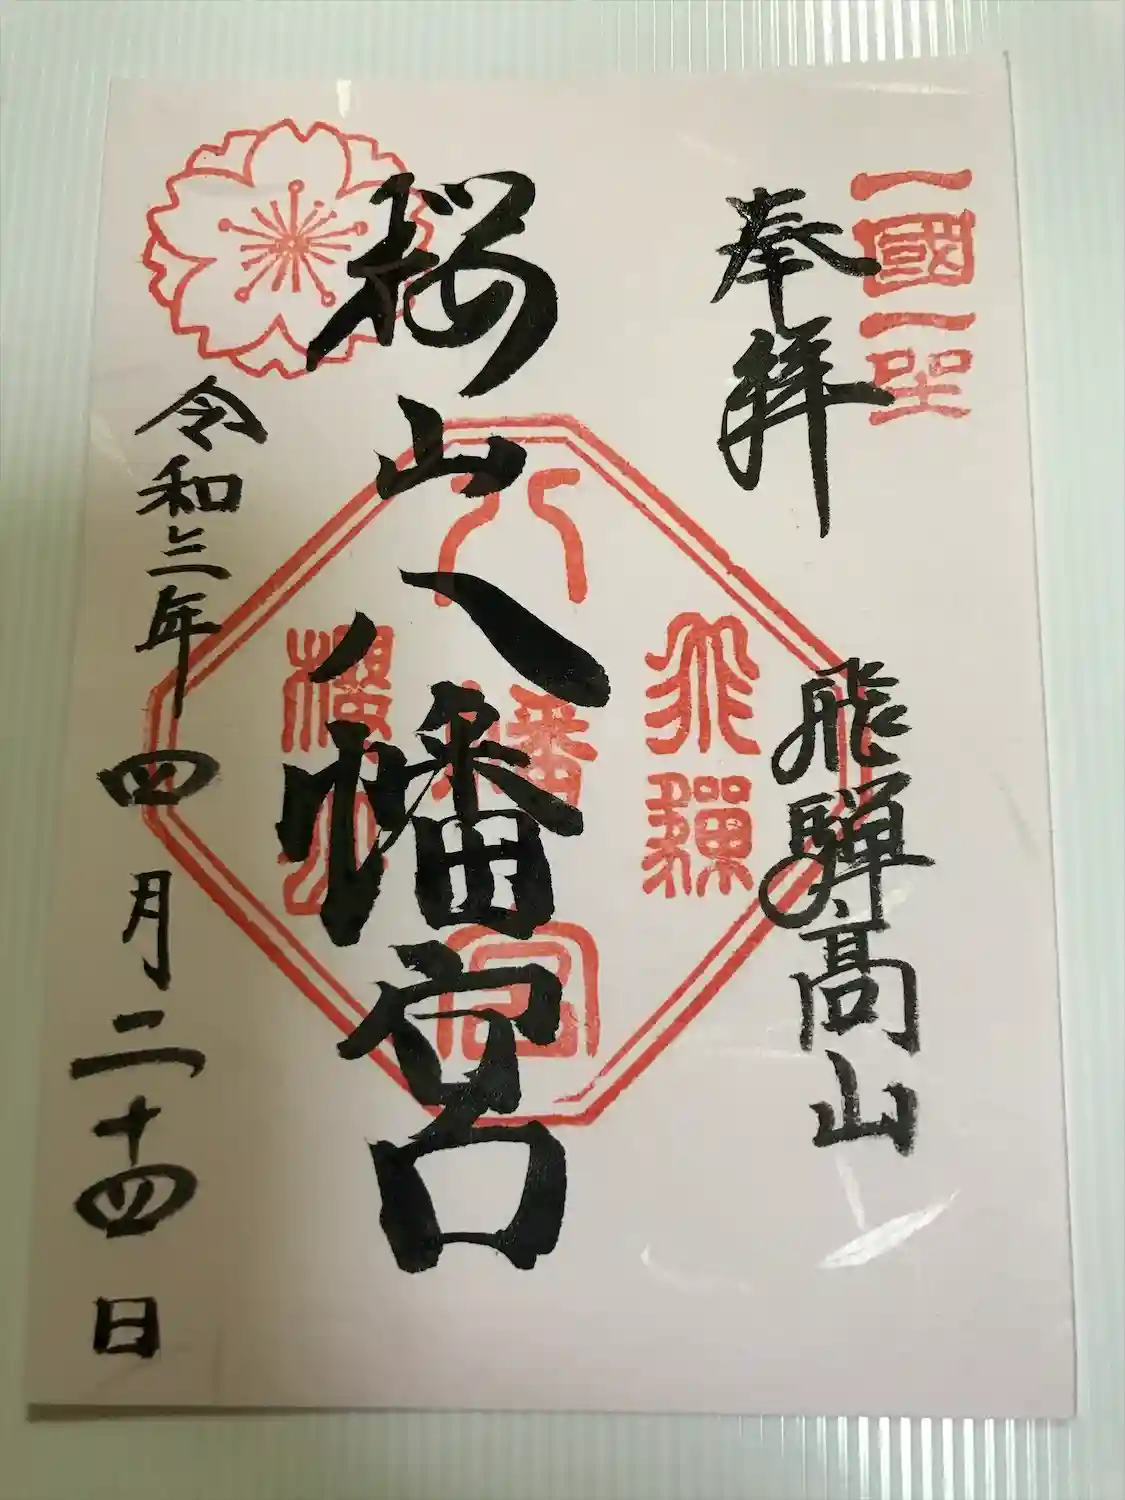 一國一社
奉拝
飛騨高山
飛騨
八幡宮
櫻山
桜山八幡宮
令和三年四月二十四日